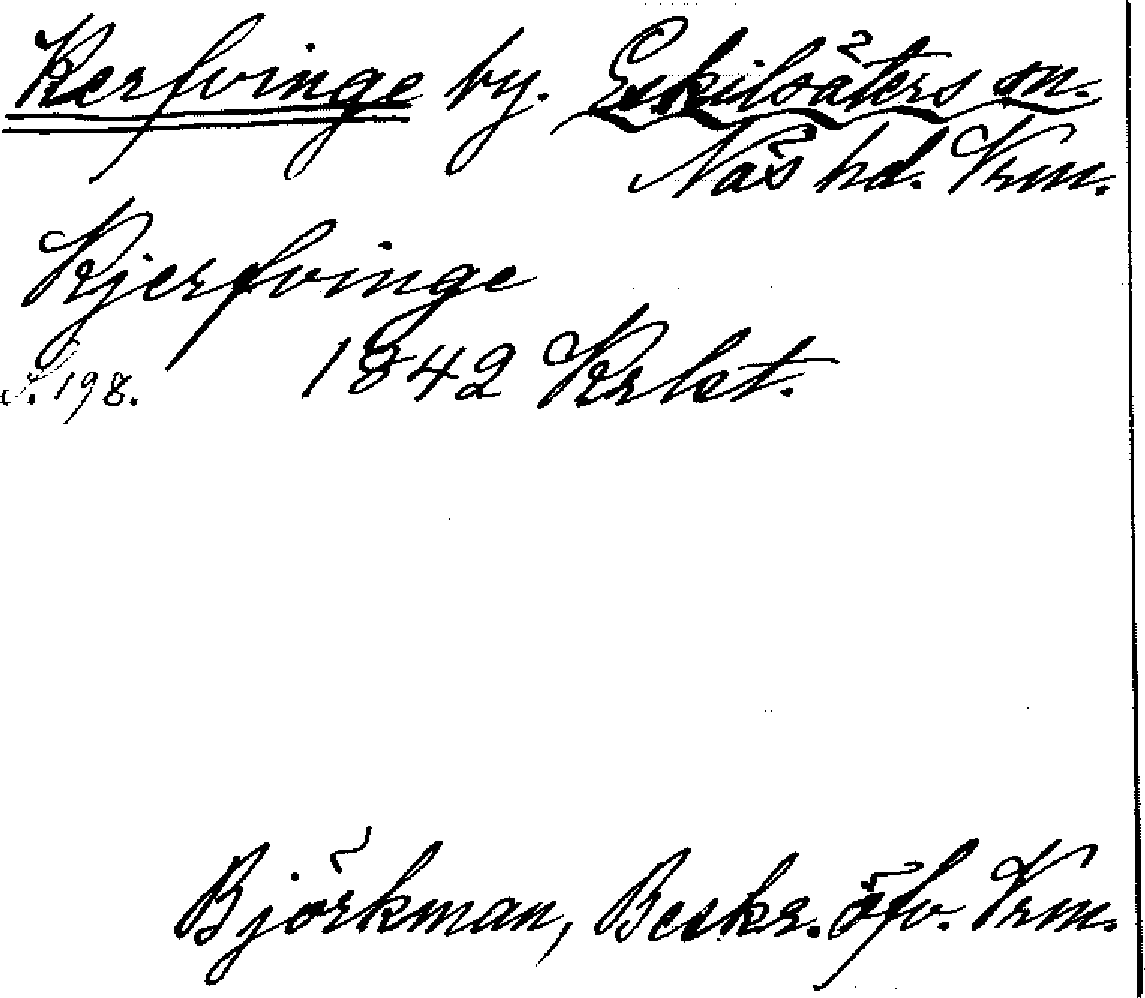 Kerfvinge by. Eskilsäters sn.
Näs hd. Vrm.
Kjerfvinge
S. 198. 1842 Krbt.
Björkman, Beskr. öfv. Vrm.